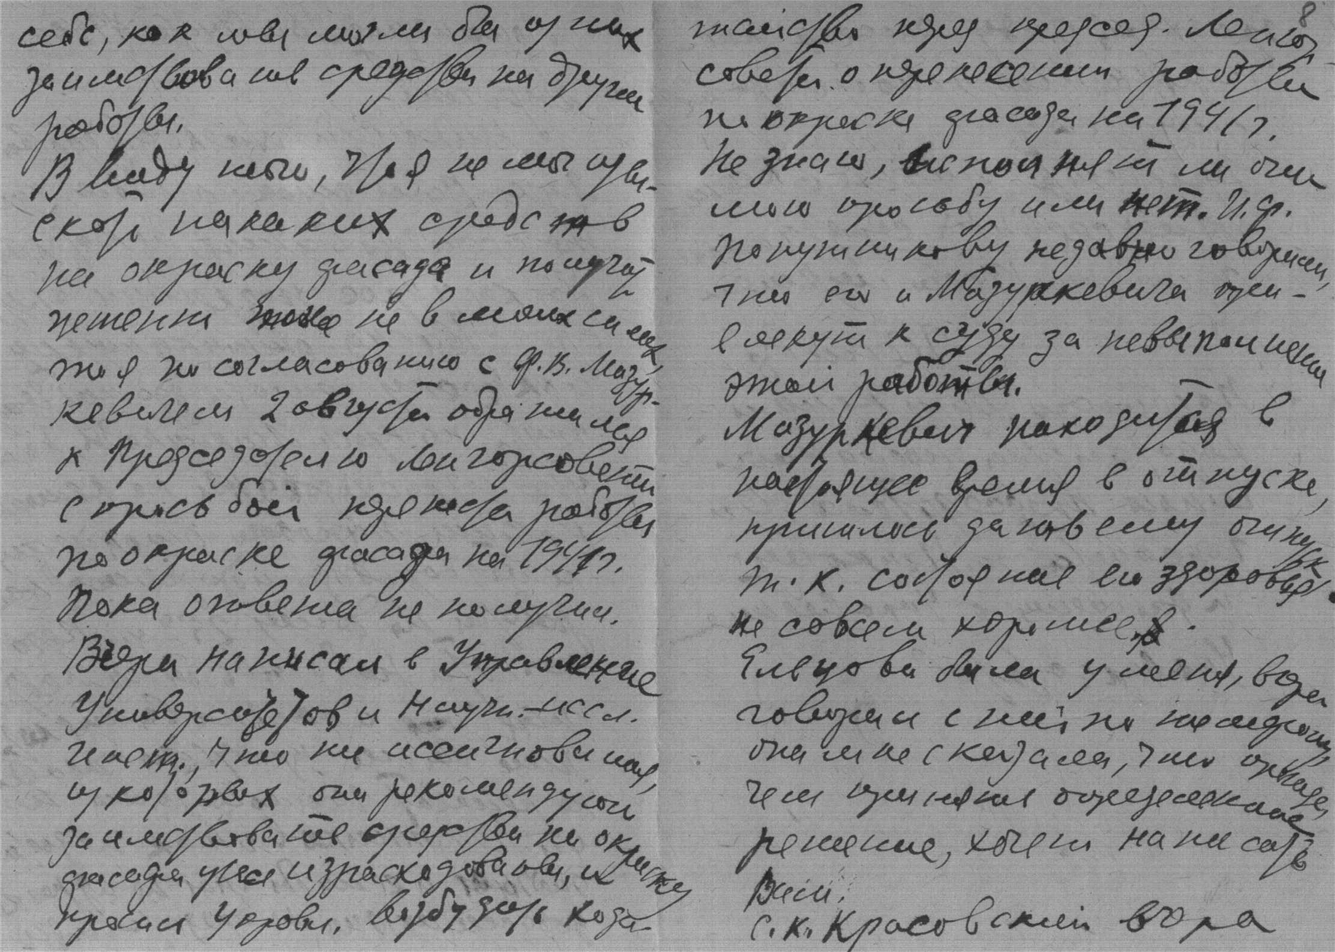 себе, как мы могли бы из них
заимствовать средства на другие
работы.
В виду того, что я не мог изы-
скать никаких средств
на окраску фасада и получать
не в моих силах
то я по согласованию с Ф.В. Мазур-
кевичем 2 августа обратился
к Председателю Ленгорсовета
с просьбой перенести работы
по окраске фасада на 1941 г.
Пока ответа не получил.
Вчера написал в Управление
Университетов и Научн.-иссл.
инст., что ассигнования,
из которых они рекомендуют
заимствовать средства на окраску
фасада уже израсходованы, и
просил Управл. возбудить хода-
тайство перед председ. Ленгор-
совета о перенесении работы
по окраске фасада на 1941 г.
Не знаю, исполнят ли они
мою просьбу или нет. И.Ф.
Попутникову недавно говорили,
что его и Мазуркевича при-
влекут к суду за невыполнение
этой работы.
Мазуркевич находится в
настоящее время в отпуске,
пришлось дать ему отпуск
т.к. состояние его здоровья
не совсем хорошее.
Ельцова была у меня, вчера
говорил с ней по телефону
она мне сказала, что прежде
чем принять определенное
решение, хочет написать
Вам.
С.К. Красовский вчера
8